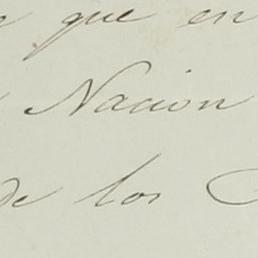 que en
Nacion
de los